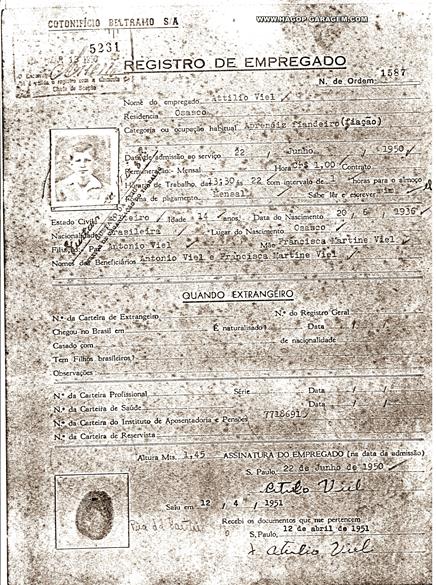 COTONIFÍCIO BELTRAMO S/A
WWW.HAGOP.GARAGEM.COM
5231
REGISTRO DE EMPREGADO
N. de Ordem: 1587
Nome do empregado Attilio Viel
Residencia Osasco
Categoria ou ocupação habitual Aprendiz Fiandeiro (fiação)
Data de admissão ao serviço 22 Junho 1950
Remuneração:- Mensal Hora Cr$ 1,00 Contrato
Horario de Trabalho, das 13,30 às 22 com intervalo de horas para o almoço
Forma de pagamento Mensal Sabe lêr e escrever sim
Estado Civil Solteiro Idade 14 anos Data do Nascimento 20 / 6 / 1936
Nacionalidade Brasileira Lugar do Nascimento Osasco
Filiação: Pai Antonio Viel Mãe Francisca Martine Viel
Nomes dos Beneficiários Antonio Viel e Francisca Martine Viel
QUANDO EXTRANGEIRO
N.º da Carteira de Extrangeiro N.º do Registro Geral
Chegou no Brasil em É naturalisado? Data / /
Casado com de nacionalidade
Tem Filhos brasileiros?
Observações
N.º da Carteira Profissional Série Data / /
N.º da Carteira de Saúde Data / /
N.º da Carteira do Instituto de Aposentadoria e Pensões 7718691
N.º da Carteira de Reservista
Altura Mts. 1,45 ASSINATURA DO EMPREGADO (na data da admissão)
S. Paulo, 22 de Junho de 1950
Atilio Viel
Saiu em 12 / 4 / 1951
Recebi os documentos que me pertencem
S. Paulo, 12 de abril de 1951
Atilio Viel